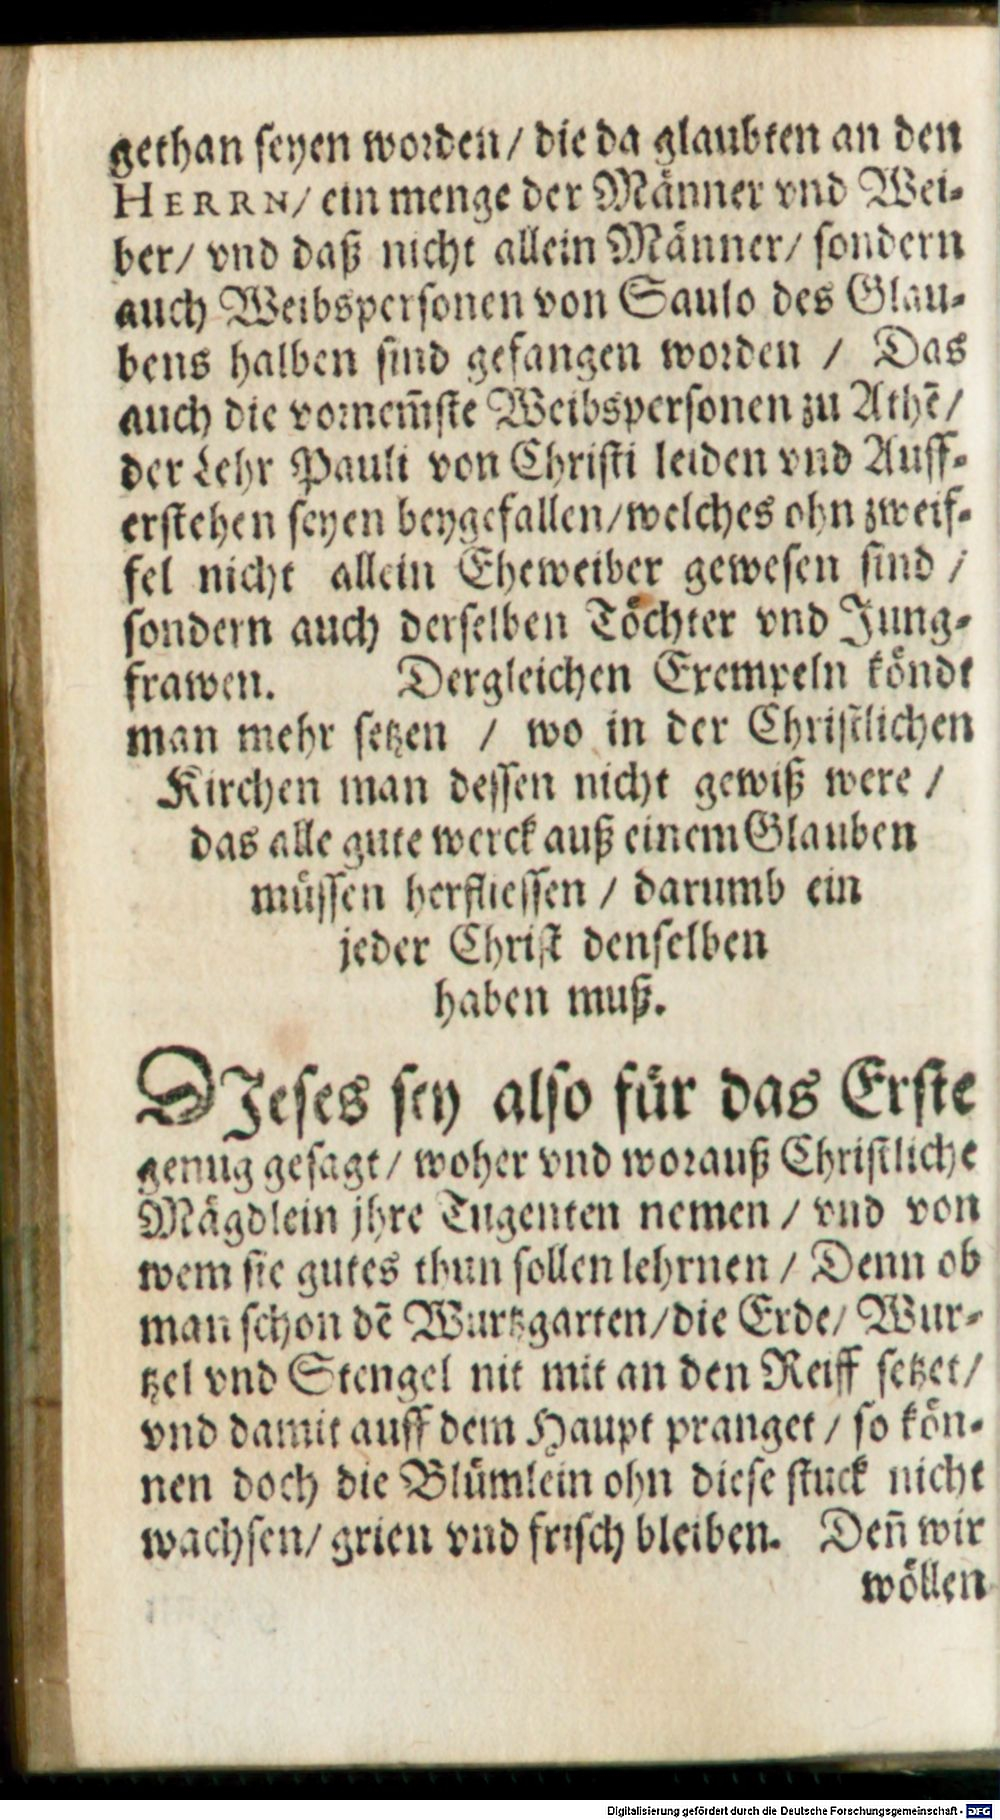 gethan seyen worden / die da glaubten an den
HERRN / ein menge der Männer vnd Wei-
ber / vnd daß nicht allein Männer / sondern
auch Weibspersonen von Saulo des Glau-
bens halben sind gefangen worden / Das
auch die vornem̃ste Weibspersonen zu Athẽ /
der Lehr Pauli von Christi leiden vnd Auff-
erstehen seyen beygefallen / welches ohn zweif-
fel nicht allein Eheweiber gewesen sind /
sondern auch derselben Töchter vnd Jung-
frawen. Dergleichen Exempeln köndt
man mehr setzen / wo in der Christlichen
Kirchen man dessen nicht gewiß were /
das alle gute werck auß einem Glauben
müssen herfliessen / darumb ein
jeder Christ denselben
haben muß.
DJeses sey also für das Erste
genug gesagt / woher vnd worauß Christliche
Mägdlein jhre Tugenten nemen / vnd von
wem sie gutes thun sollen lehrnen / Denn ob
man schon dẽ Wurtzgarten / die Erde / Wur-
tzel vnd Stengel nit mit an den Reiff setzet /
vnd damit auff dem Haupt pranget / so kön-
nen doch die Blümlein ohn diese stuck nicht
wachsen / grien vnd frisch bleiben. Deñ wir
wöllen
Digitalisierung gefördert durch die Deutsche Forschungsgemeinschaft - DFG